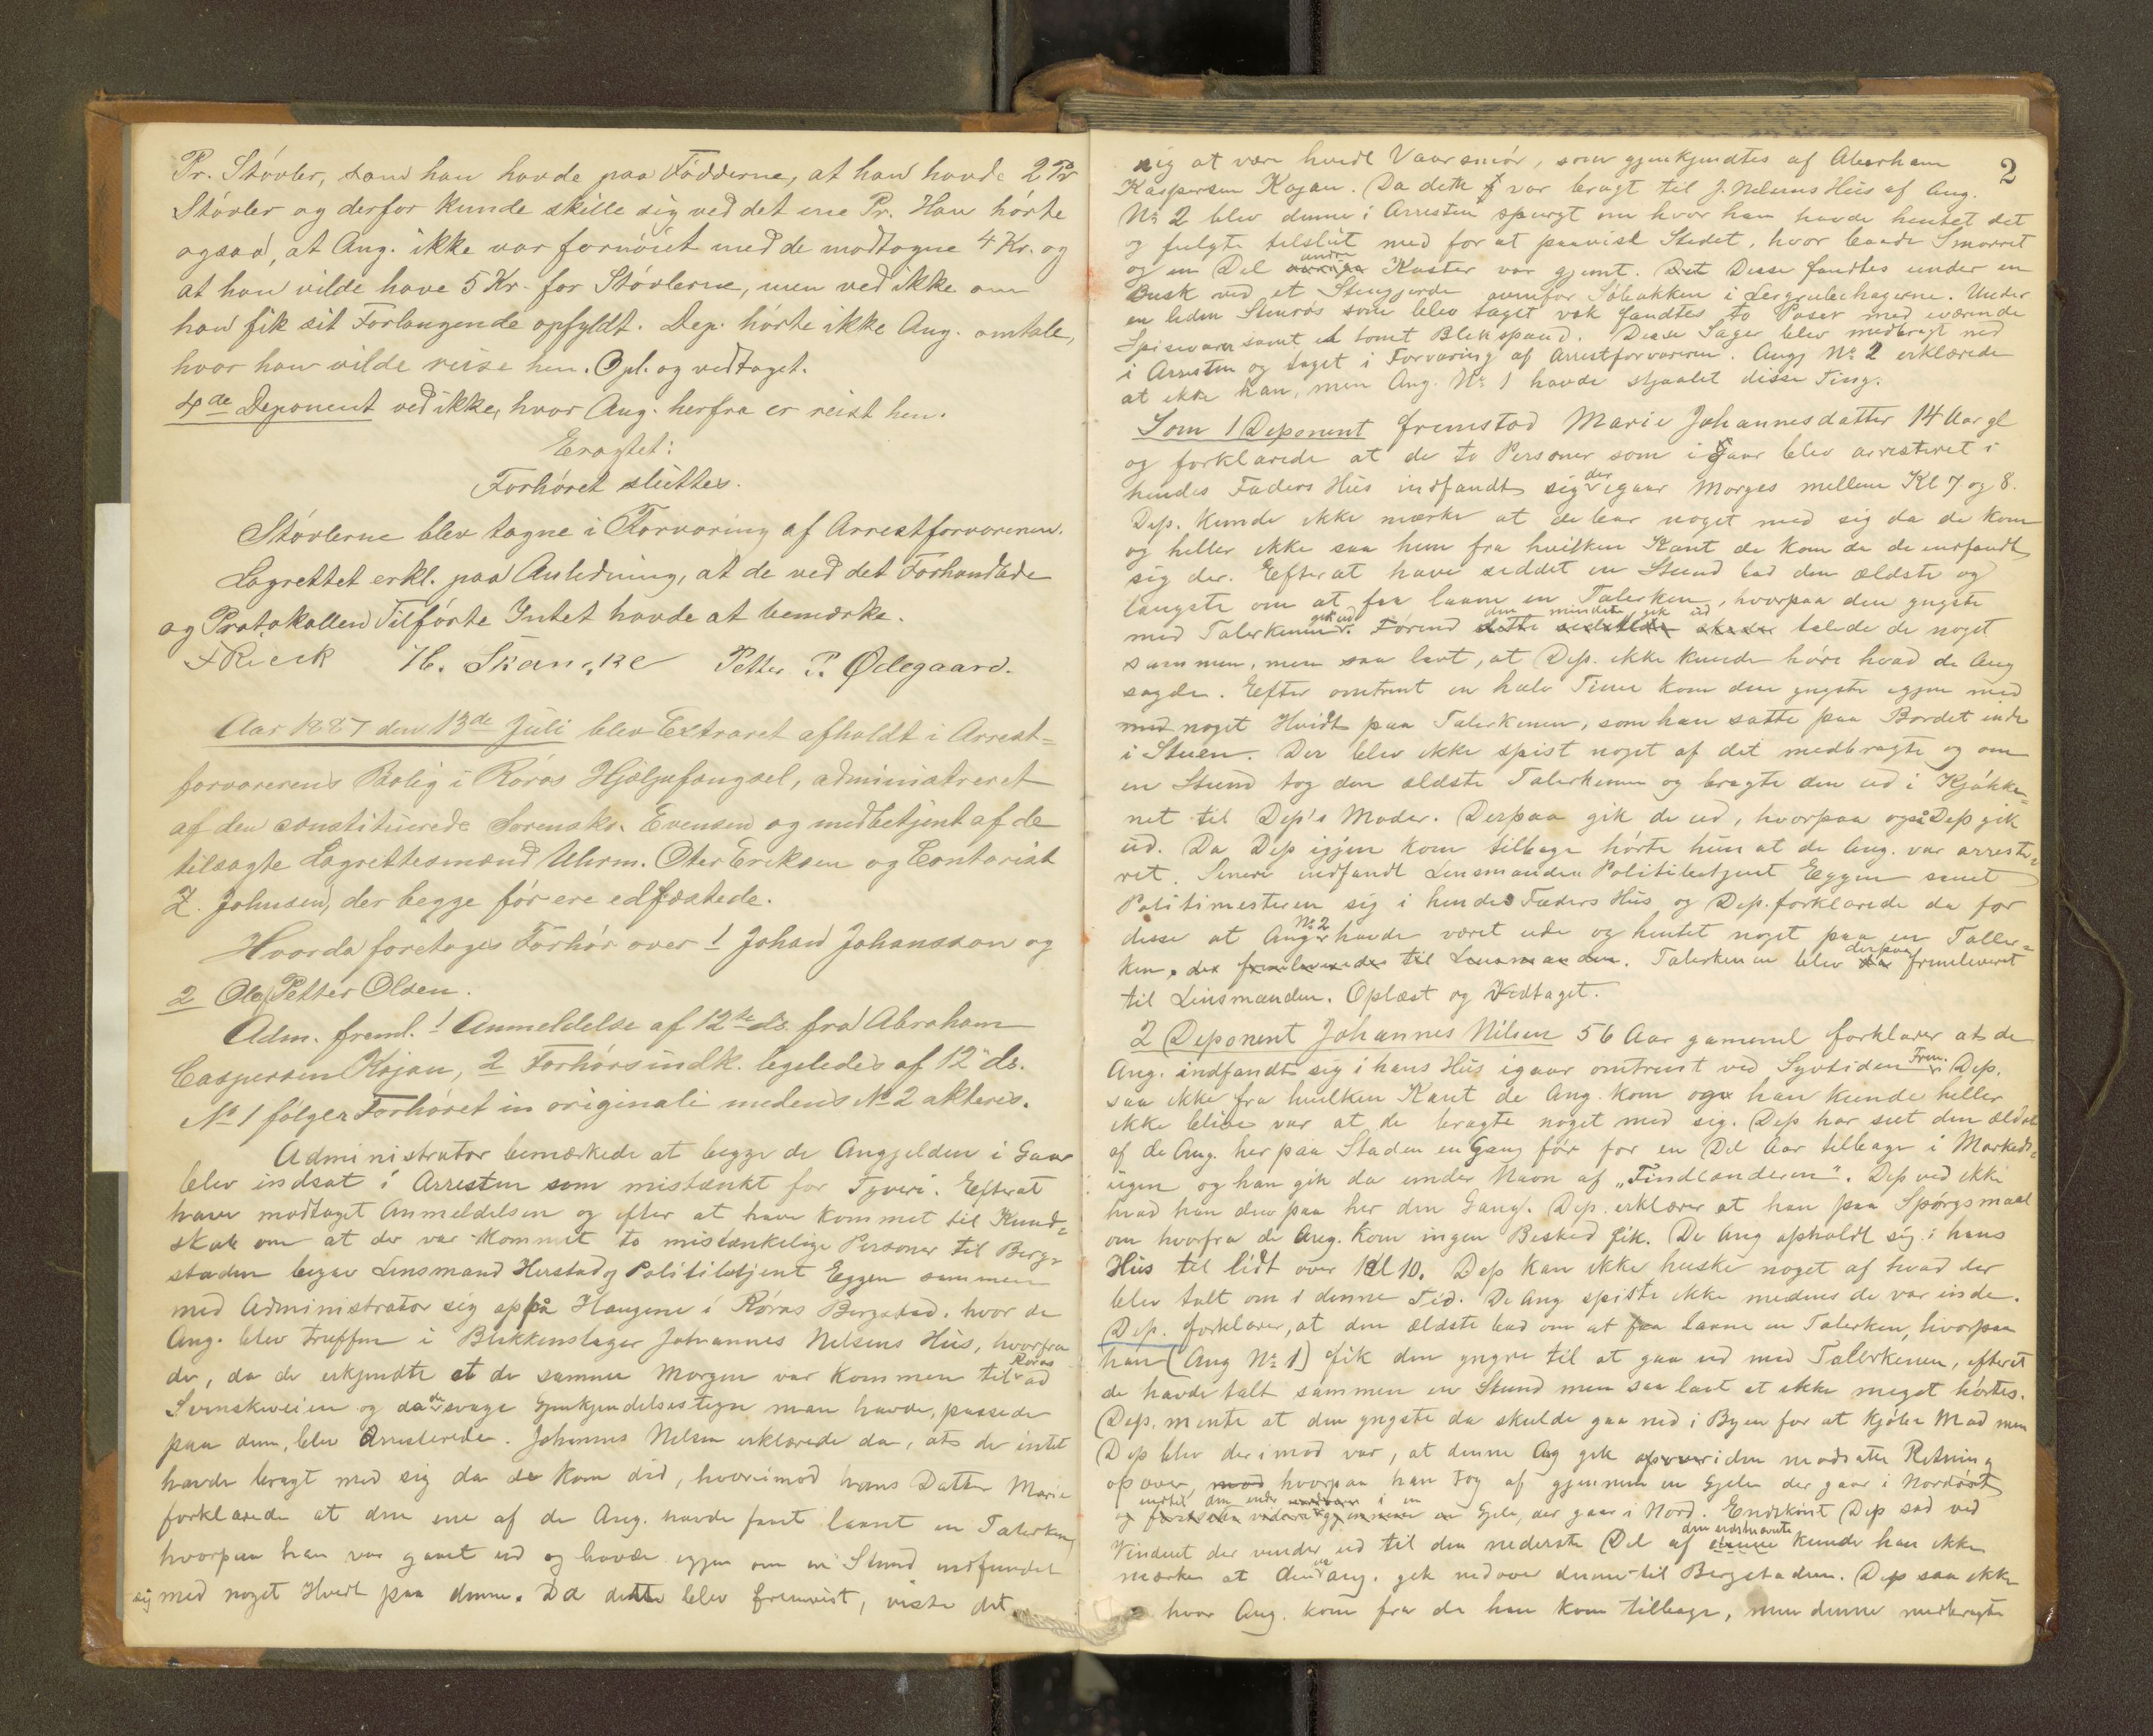 Pr. Støvler, som han havde paa Fødderne, at han havde 2 Pr
Støvler og derfor kunde skille sig ved det ene Pr. Han hørte
ogsaa, at Ang. ikke var fornøiet med de modtagne 4 Kr. og
at han vilde have 5 Kr. for Støvlerne, men ved ikke om
han fik sit Forlangende opfyldt. Dep. hørte ikke Ang. omtale,
hvor han vilde reise hen. Opl. og vedtaget.
4de Deponent ved ikke, hvor Ang. herfra er reist hen.
Eragtet:
Forhøret sluttes.
Støvlerne blev tagne i Forvaring af Arrestforvareren.
Lagrettet erkl. paa Anledning, at de ved det Forhandlede
og Protokollen Tilførte Intet havde at bemærke.
FRieck H. Skancke Petter P. Ødegaard.
Aar 1887 den 13de Juli blev Extraret afholdt i Arrest=
forvarerens Bolig i Røros Hjælpefængsel, administreret
af den constituerede Sorenskr. Evensen og medbetjent af de
tilsagte Lagrettesmænd Uhrm. Oter Eriksen og Contorist
Z. Johnsen, der begge før ere edfæstede.
Hvorda foretoges Forhør over 1 Johan Johansson og
2 Ole Petter Olsen.
Adm. freml. 1 Anmeldelse af 12te ds. fra Abraham
Caspersen Kojan, 2 Forhørsindk. legeledes af 12" ds.
No 1 følger Forhøret in originali medens No 2 akteres.
Administrator bemærkede at begge de Angjeldne i Gaar
blev indsat i Arresten som mistænkt for Tyveri. Efterat
have modtaget Anmeldelsen og efter at have kommet til Kund=
skab om at der var kommet to mistænkelige Personer til Berg=
staden begav Lensmand Herstad og Politibetjent Eggen sammen
med Administrator sig op på Haugene i Røros Bergstad, hvor de
Ang. blev truffen i Blikkenslager Johannes Nelsens Hus, hvorfra
de, da de erkjendte at de samme Morgen var kommen til Røros ad
Svenskeveien og da de svage Gjenkjendelsestegn man havde, passede
paa dem, blev Arresterede. Johannes Nelsen erklærede da, at de intet
havde bragt med sig da de kom did, hvorimod hans Datter Marie
forklarede at den ene af de Ang. havde faaet laant en Talerken
hvorpaa han var gaaet ud og havde igjen om en Stund indfundet
sig med noget Hvidt paa denne. Da dette blev fremvist, viste det
2
sig at være hvidt Vaarsmør, som gjenkjendtes af Abraham
Kaspersen Kojan. Da dette var bragt til J. Nelsens Hus af Ang.
No 2 blev denne i Arresten spurgt om hvor han havde hentet det
og fulgte tilslut med for at paavise Stedet, hvor baade Smørret
og en Del andre Koster var gjemt. Disse fandtes under en
Busk ved et Stengjerde ovenfor Søbakken i Lergrubehagerne. Under
en liden Stenrøs som blev taget vek fandtes to Poser med
Spisevarer samt et tomt Blikspand. Disse Sager blev medbragt ned
i Arresten og taget i Forvaring af Arrestforvareren. Ang No 2 erklærede
at ikke han, men Ang. No 1 havde stjaalet disse Ting.
Som 1 Deponent fremstod Marie Johannesdatter 14 Aar gl
og forklarede at de to Personer som i Gaar blev arresteret i
hendes Faders Hus indfandt sig der igaar Morges mellem Kl 7 og 8.
Dep. kunde ikke mærke at de bar noget med sig da de kom
og heller ikke saa hun fra hvilken Kant de kom da de indfandt
sig der. Efterat have siddet en Stund bad den ældste og
længste om at faa laane en Talerken, hvorpaa den yngste
med Talerkenen gik ud. Førend den mindste gik ud talede de noget
sammen, men saa lavt, at Dep. ikke kunde høre hvad de Ang
sagde. Efter omtrent en halv Time kom den yngste igjen med
med noget Hvidt paa Talerkenen, som han satte paa Bordet inde
i Stuen. Der blev ikke spist noget af det medbragte og om
en Stund tog den ældste Talerkenen og bragte den ud i Kjøkke=
net til Dep's Moder. Derpaa gik de ud, hvorpaa også Dep gik
ud. Da Dep igjen kom tilbage hørte hun at de Ang. var arreste=
ret. Senere indfandt Lensmanden Politibetjent Eggen samt
Politimesteren sig i hendes Fæders Hus og Dep. forklarede da for
disse at Ang No 2 havde været ude og hentet noget paa en Taller=
ken, der fremleveredes til Lensmanden. Talerkenen blev derpaa fremleveret
til Lensmanden. Oplæst og Vedtaget.
2 Deponent Johannes Nilsen 56 Aar gammel forklarer at de
Ang. indfandt sig i hans Hus igaar omtrent ved Syvtiden Frm. Dep.
saa ikke fra hvilken Kant de Ang. kom og han kunde heller
ikke blive var at de bragte noget med sig. Dep har seet den ældste
af de Ang. her paa Staden en Gang før for en Del Aar tilbage i Markeds=
ugen og han gik da under Navn af „Findlanderen". Dep ved ikke
hvad han drev paa her den Gang. Dep. erklærer at han paa Spørgsmaal
om hvorfra de Ang. kom ingen Besked fik. De Ang opholdt sig i hans
Hus til lidt over Kl 10. Dep kan ikke huske noget af hvad der
blev talt om i denne Tid. De Ang spiste ikke medens de var inde.
Dep. forklarer, at den ældste bad om at faa laane en Talerken, hvorpaa
han (Ang No 1) fik den yngre til at gaa ud med Tallerkenen, efterat
de havde talt sammen en Stund men saa lavt at ikke meget hørtes.
Dep. mente at den yngste da skulde gaa ned i Byen for at kjøbe Mad men
Dep blev derimod var, at denne Ang gik i den modsatte Retning
opover, hvorpaa han tog af gjennem en Gjele der gaar i Nordøst
indtil den ender i en Gjele, der gaar i Nord. Endskjønt Dep sad ved
Vinduet der vender ud til den nederste Del af den sidstnævnte kunde han ikke
mærke at den Ang. gik nedover denne til Bergstaden. Dep saa ikke
hvor Ang. kom fra da han kom tilbage, men denne medbragte